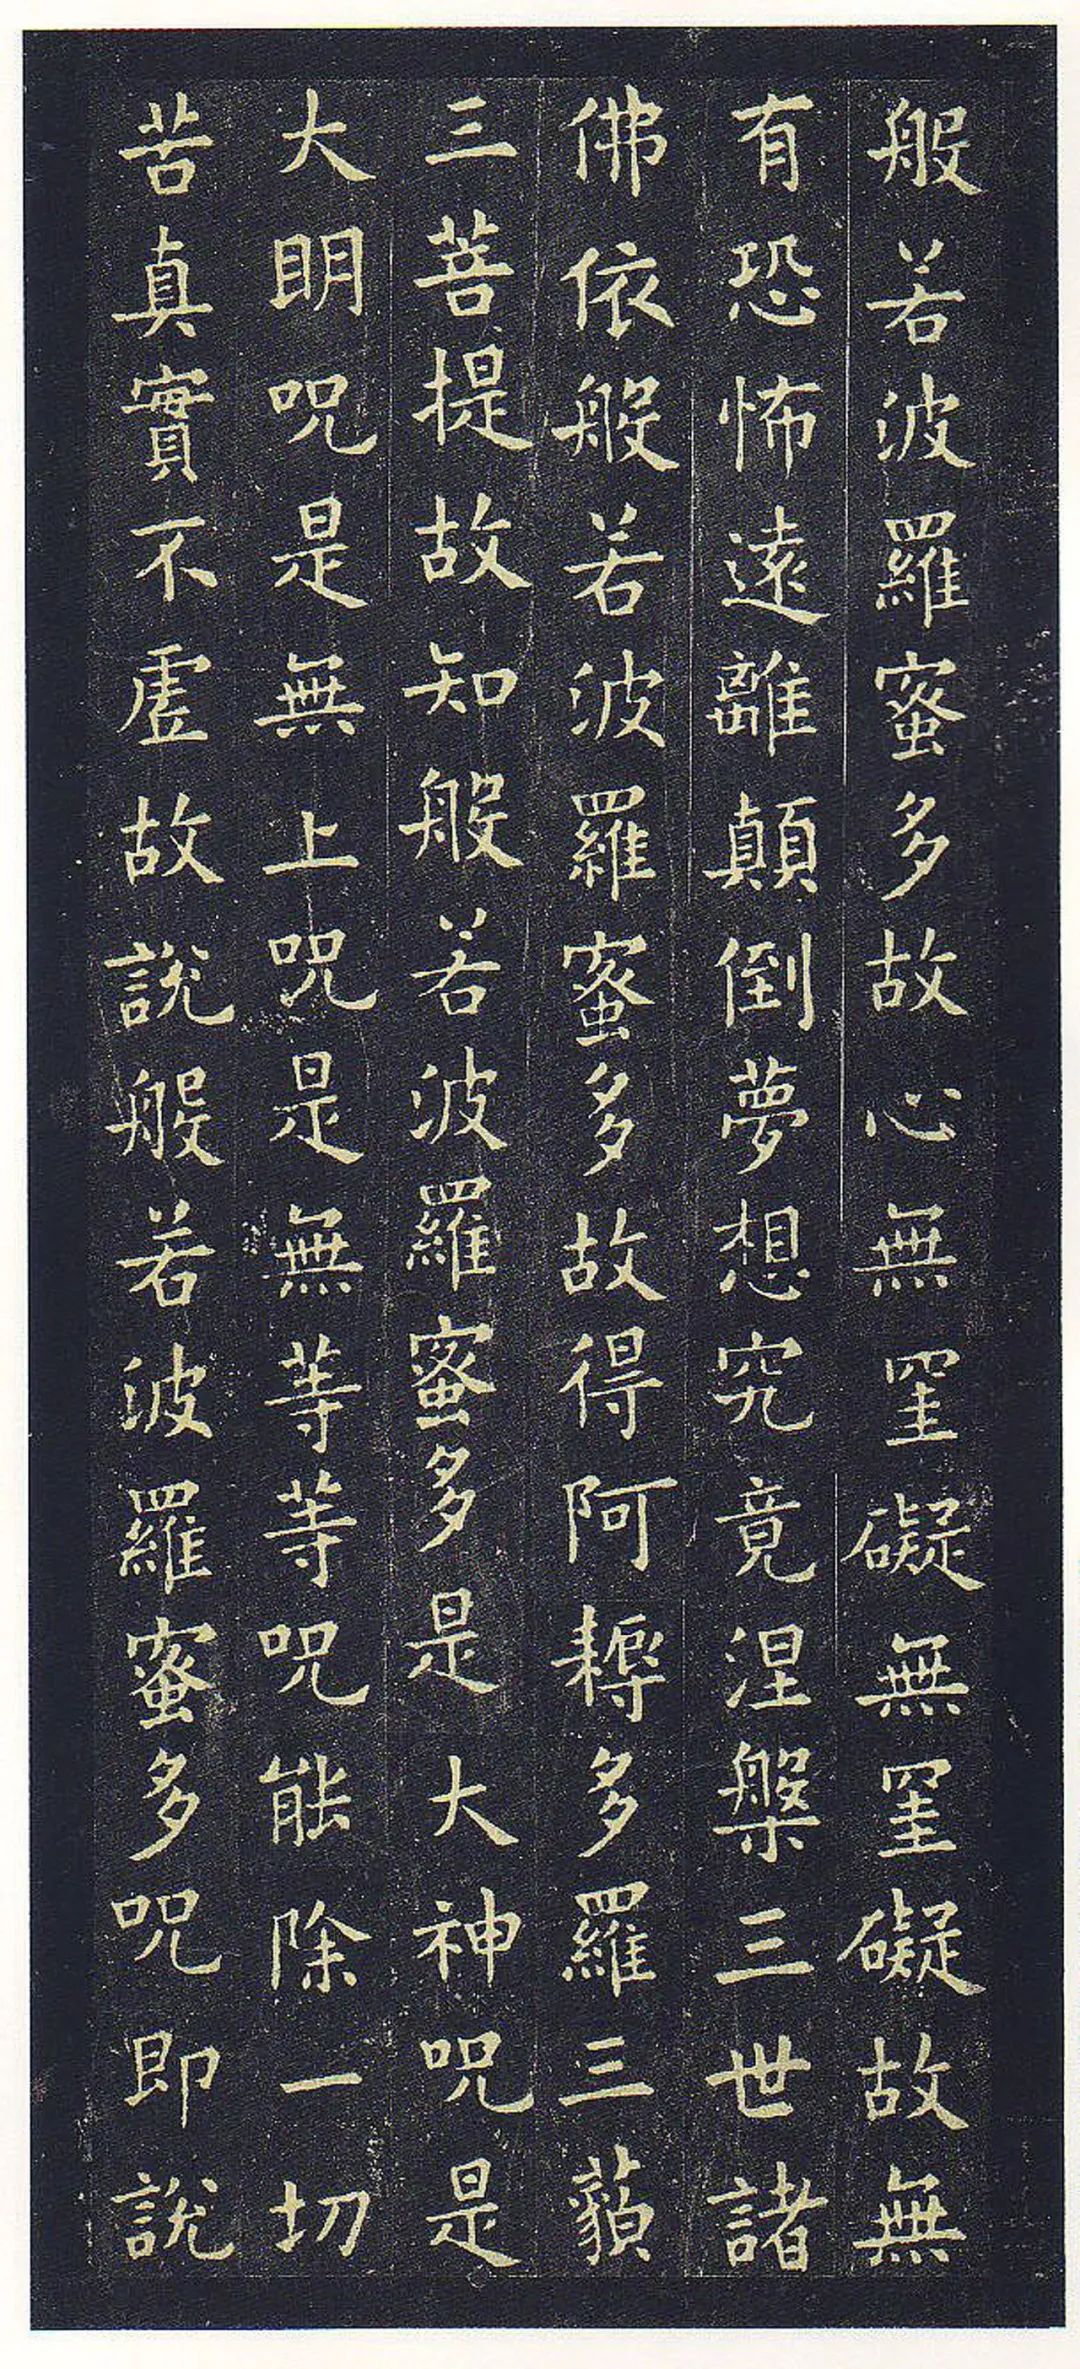 般若波羅蜜多故心無罣礙無罣礙故無
有恐怖遠離顛倒夢想究竟涅槃三世諸
佛依般若波羅蜜多故得阿耨多羅三藐
三菩提故知般若波羅蜜多是大神呪是
大明呪是無上呪是無等等呪能除一切
苦真實不虛故說般若波羅蜜多呪即說